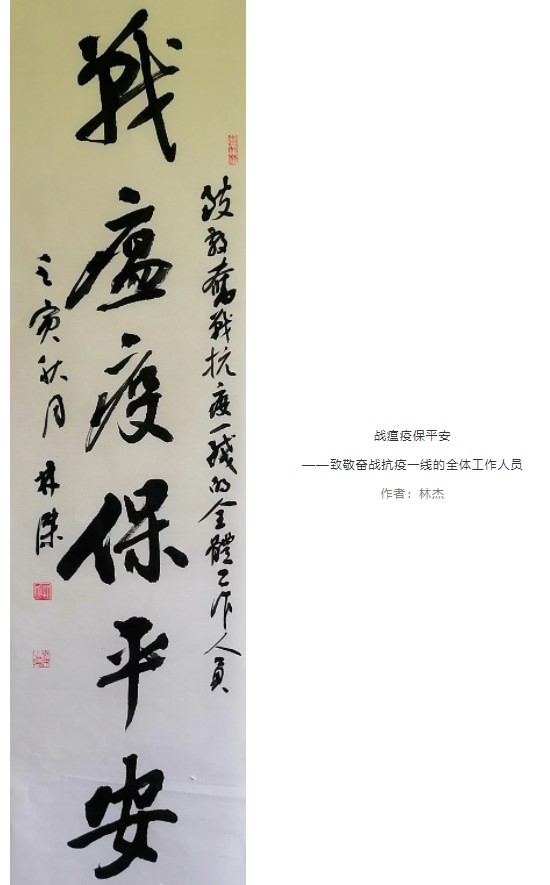 戰瘟疫保平安
致敬奮戰抗疫一綫的全體工作人員
壬寅秋月 林傑
战瘟疫保平安
——致敬奋战抗疫一线的全体工作人员
作者：林杰